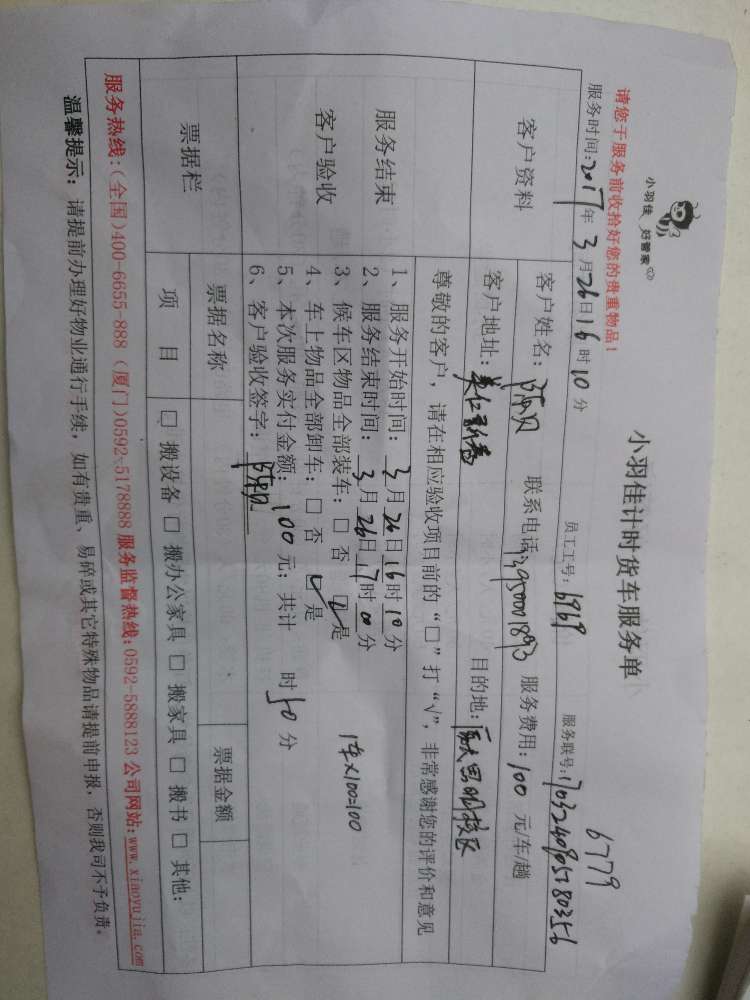 小羽佳 好管家
小羽佳计时货车服务单
6779
请您于服务前收拾好您的贵重物品!
服务时间:2017年 3月26日16时10分 员工工号:6969 服务联号:
客户资料
客户姓名: 联系电话:13950001893 服务费用:100 元/车/趟
客户地址: 目的地:厦大思明校区
尊敬的客户,请在相应验收项目前的“□”打“√”,非常感谢您的评价和意见
服务结束
客户验收
1、服务开始时间:3月26日16时10分
2、服务结束时间:3月26日17时0分
3、候车区物品全部装车:□ 否 ☑是
4、车上物品全部卸车:□ 否 ☑是
1车×100=100
5、本次服务实付金额:100元;共计 时50分
6、客户验收签字:
票据栏
票据名称 票据金额
项 目 □ 搬设备 □ 搬办公家具 □ 搬家具 □ 搬书 □ 其他:
服务热线:(全国)400-6655-888 (厦门)0592-5178888 服务监督热线:0592-5888123 公司网站:www.xiaoyujia.com
温馨提示:请提前办理好物业通行手续,如有贵重、易碎或其它特殊物品请提前申报,否则我司不予负责。